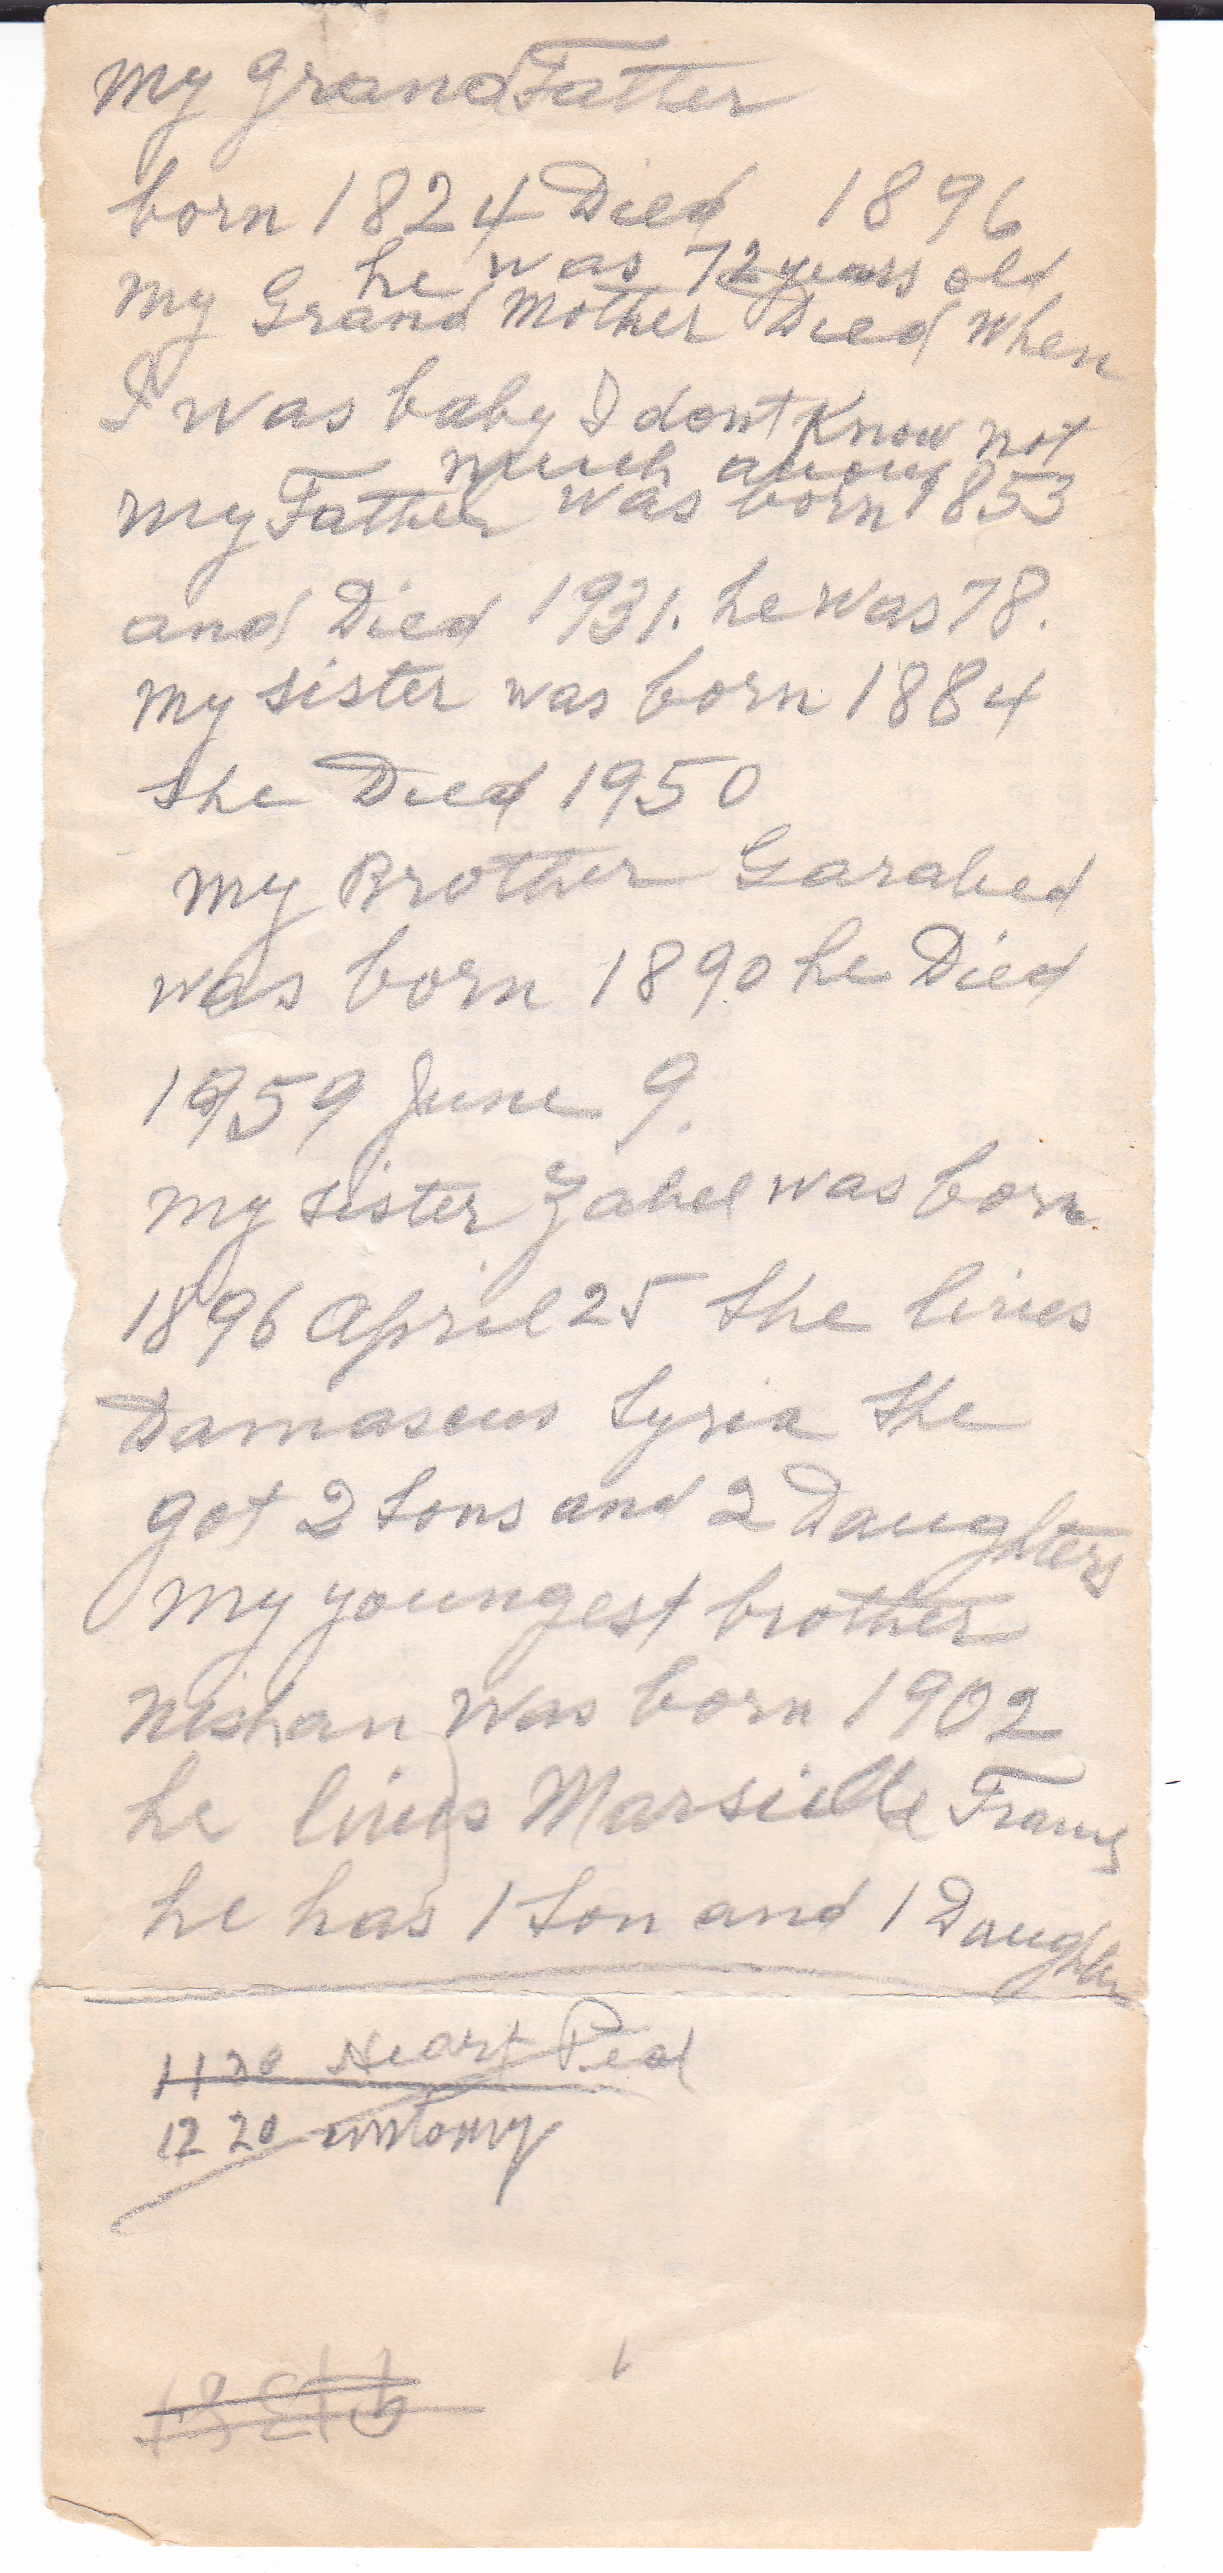 My GrandFather
born 1824 Died 1896
he was 72 years old
My Grand Mother Died when
I was baby I dont Know not
much about
My Father was born 1853
and Died 1931. he was 78.
My sister was born 1884
she Died 1950
My Brother Garabed
was born 1890 he Died
1959 June 9.
My sister Zabel was born
1896 April 25 she lives
Damascus Syria she
got 2 sons and 2 Daughters
My youngest brother
Nishan was born 1902
he lives Marsielle France
he has 1 son and 1 Daughter
1120 Heart
12 20